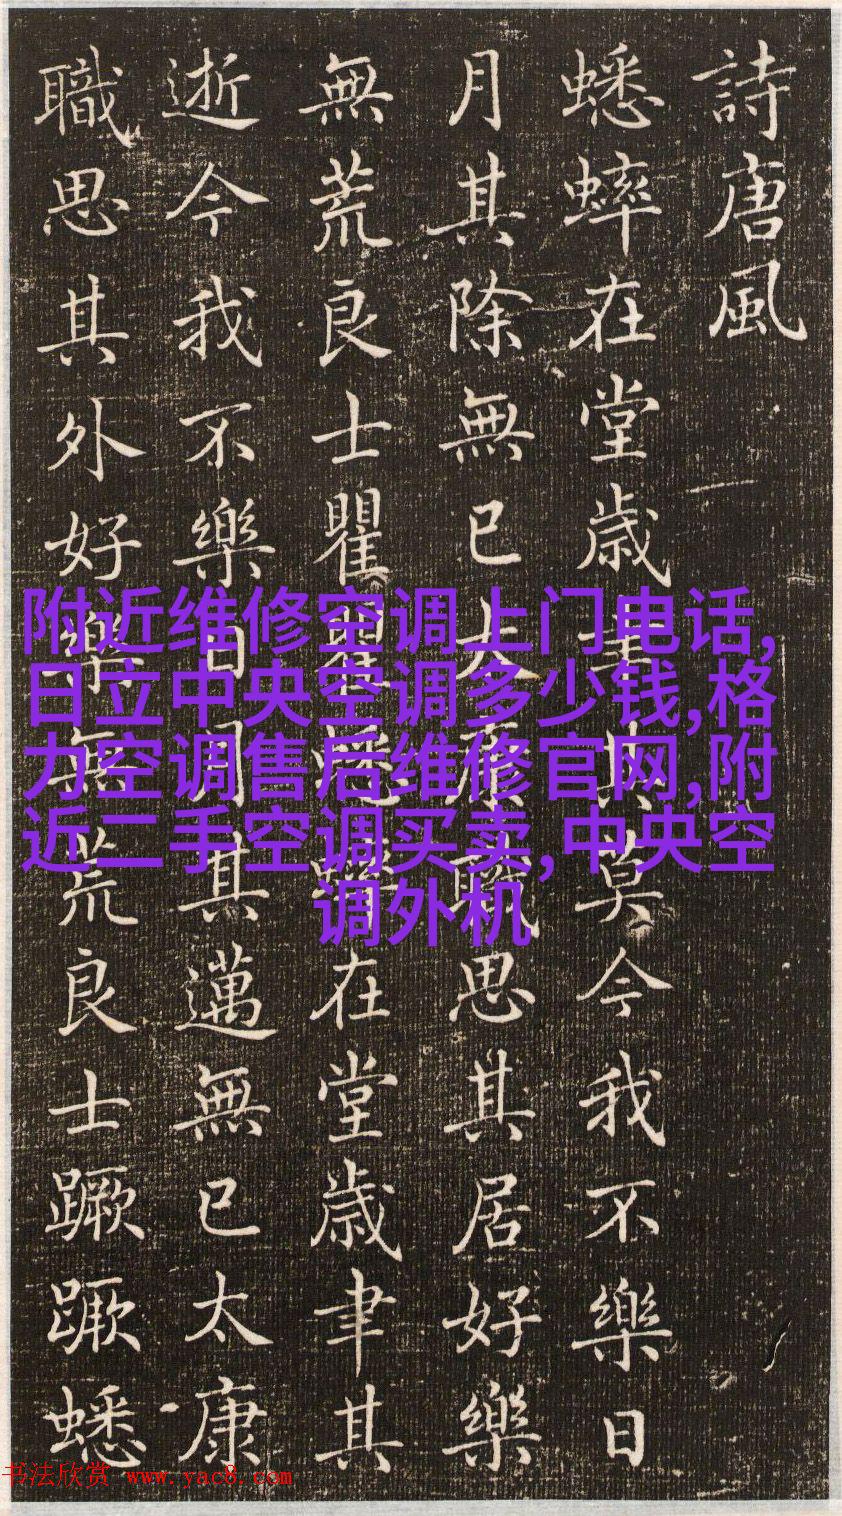 詩唐風
蟋蟀在堂歳聿其莫今我不樂日
月其除無已大康職思其居好樂
無荒良士瞿瞿蟋蟀在堂歳聿其
逝今我不樂日月其邁無已太康
職思其外好樂無荒良士蹶蹶蟋
附近维修空调上门电话,
日立中央空调多少钱,格
力空调售后维修官网,附
近二手空调买卖,中央空
调外机
书法欣赏 www.yac8.com